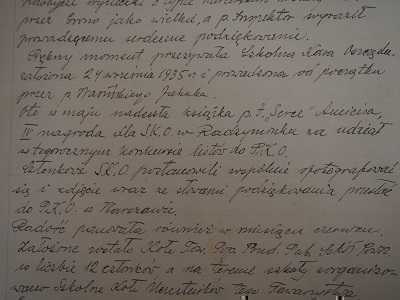 przez Grono jako wielkie, a p. Inspektor wyraził
prowadzącemu serdeczne podziękowanie.
Piękny moment przeżywała Szkolna Kasa Oszczędn.
założona 24 września 1935 r. i prowadzona od początku
przez p.
Oto w maju nadeszła książka p. t. „Serce" Amicisa,
IV nagroda dla S.K.O. w Radzyminku za udział
w tegorocznym konkursie listów do P.K.O.
Członkowie S.K.O. postanowili wspólnie sfotografować
się i zdjęcie wraz ze słowami podziękowania przesłać
do P.K.O. w Warszawie.
Radość panowała również w miesiącu czerwcu.
Założone zostało Koło Tow. Pop. Bud. Pub. Szkół Pow.
w liczbie 12 członków a na terenie szkoły zorganizo-
wano Szkolne Koło tego Towarzystwa